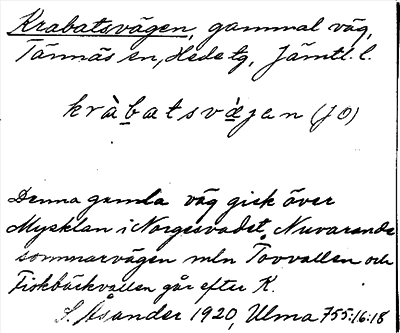 Krabatsvägen, gammal väg,
Tännäs sn, Hede tg, Jämtl. l.
kràbatsvæ̀gen (JO)
Denna gamla väg gick över
Mysklan i Norgesvadet. Nuvarande
sommarvägen mln Tovvallen och
Fiskbäckvallen går efter K.
S. Åsander 1920, Ulma 755:16:18